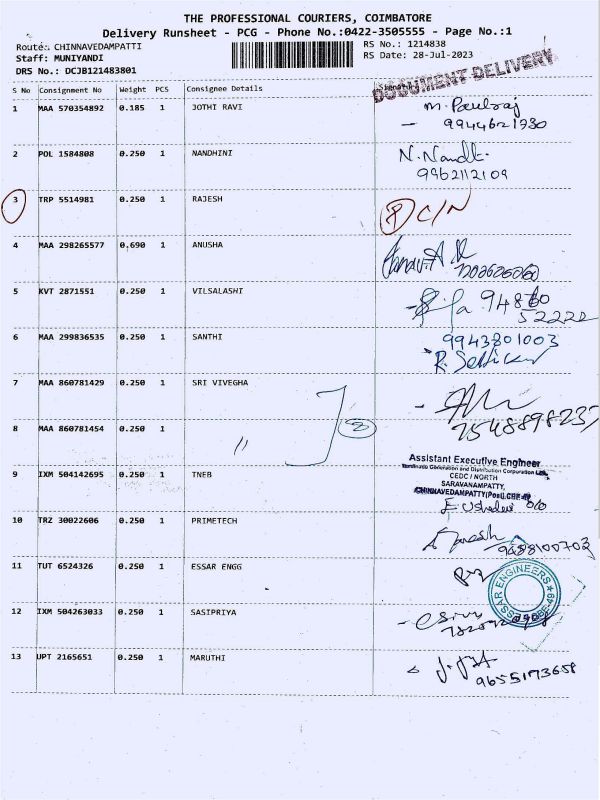 THE PROFESSIONAL COURIERS, COIMBATORE
Delivery Runsheet - PCG - Phone No.:0422-3505555 - Page No.:1
Route: CHINNAVEDAMPATTI
RS No.: 1214838
Staff: MUNIYANDI
RS Date: 28-Jul-2023
DRS No.: DCJB121483801
DOCUMENT DELIVERY
S No Consignment No Weight PCS Consignee Details
1 MAA 570354892 0.185 1 JOTHI RAVI M. Paulraj
9944621730
2 POL 1584808 0.250 1 NANDHINI N. Nandh.
9962112109
3 TRP 5514981 0.250 1 RAJESH C/N
4 MAA 298265577 0.690 1 ANUSHA
5 KVT 2871551 0.250 1 VILSALASHI
52222
6 MAA 299836535 0.250 1 SANTHI 9943801003
7 MAA 860781429 0.250 1 SRI VIVEGHA
8 MAA 860781454 0.250 1 " 2
9 IXM 504142695 0.250 1 TNEB Assistant Executive Engineer
Tamilnadu Generation and Distribution Corporation Ltd.,
CEDC / NORTH
SARAVANAMPATTY,
CHINNAVEDAMPATTY(Post),CBE-49
10 TRZ 30022606 0.250 1 PRIMETECH
9488100703
11 TUT 6524326 0.250 1 ESSAR ENGG ESSAR ENGINEERS
12 IXM 504263033 0.250 1 SASIPRIYA
13 UPT 2165651 0.250 1 MARUTHI
9655173658